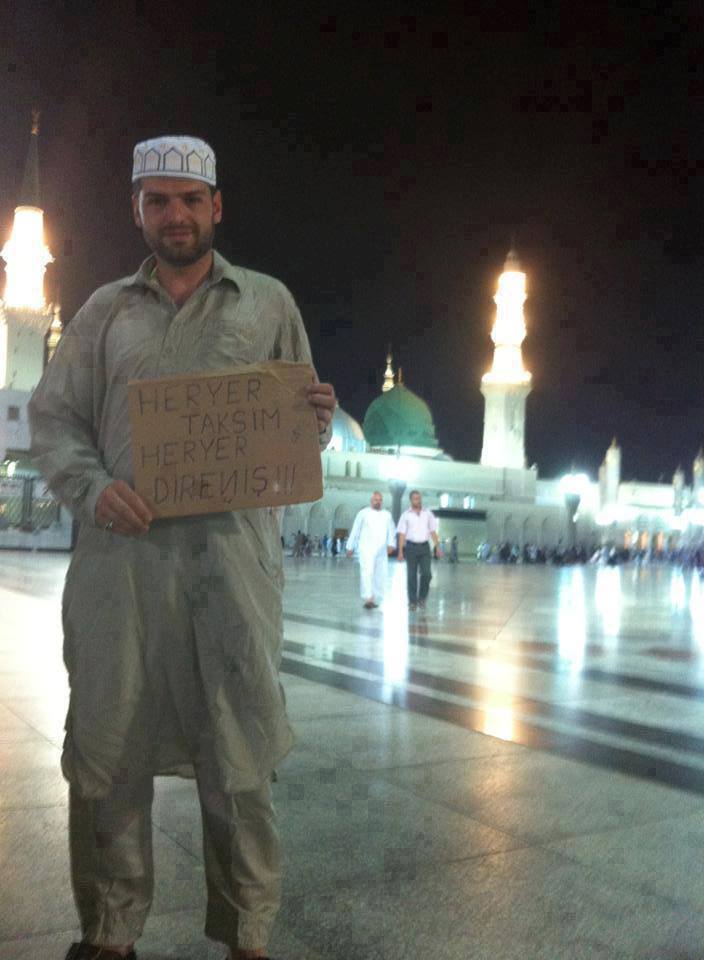 HERYER
TAKSIM
HERYER
DIRENIŞ!!!